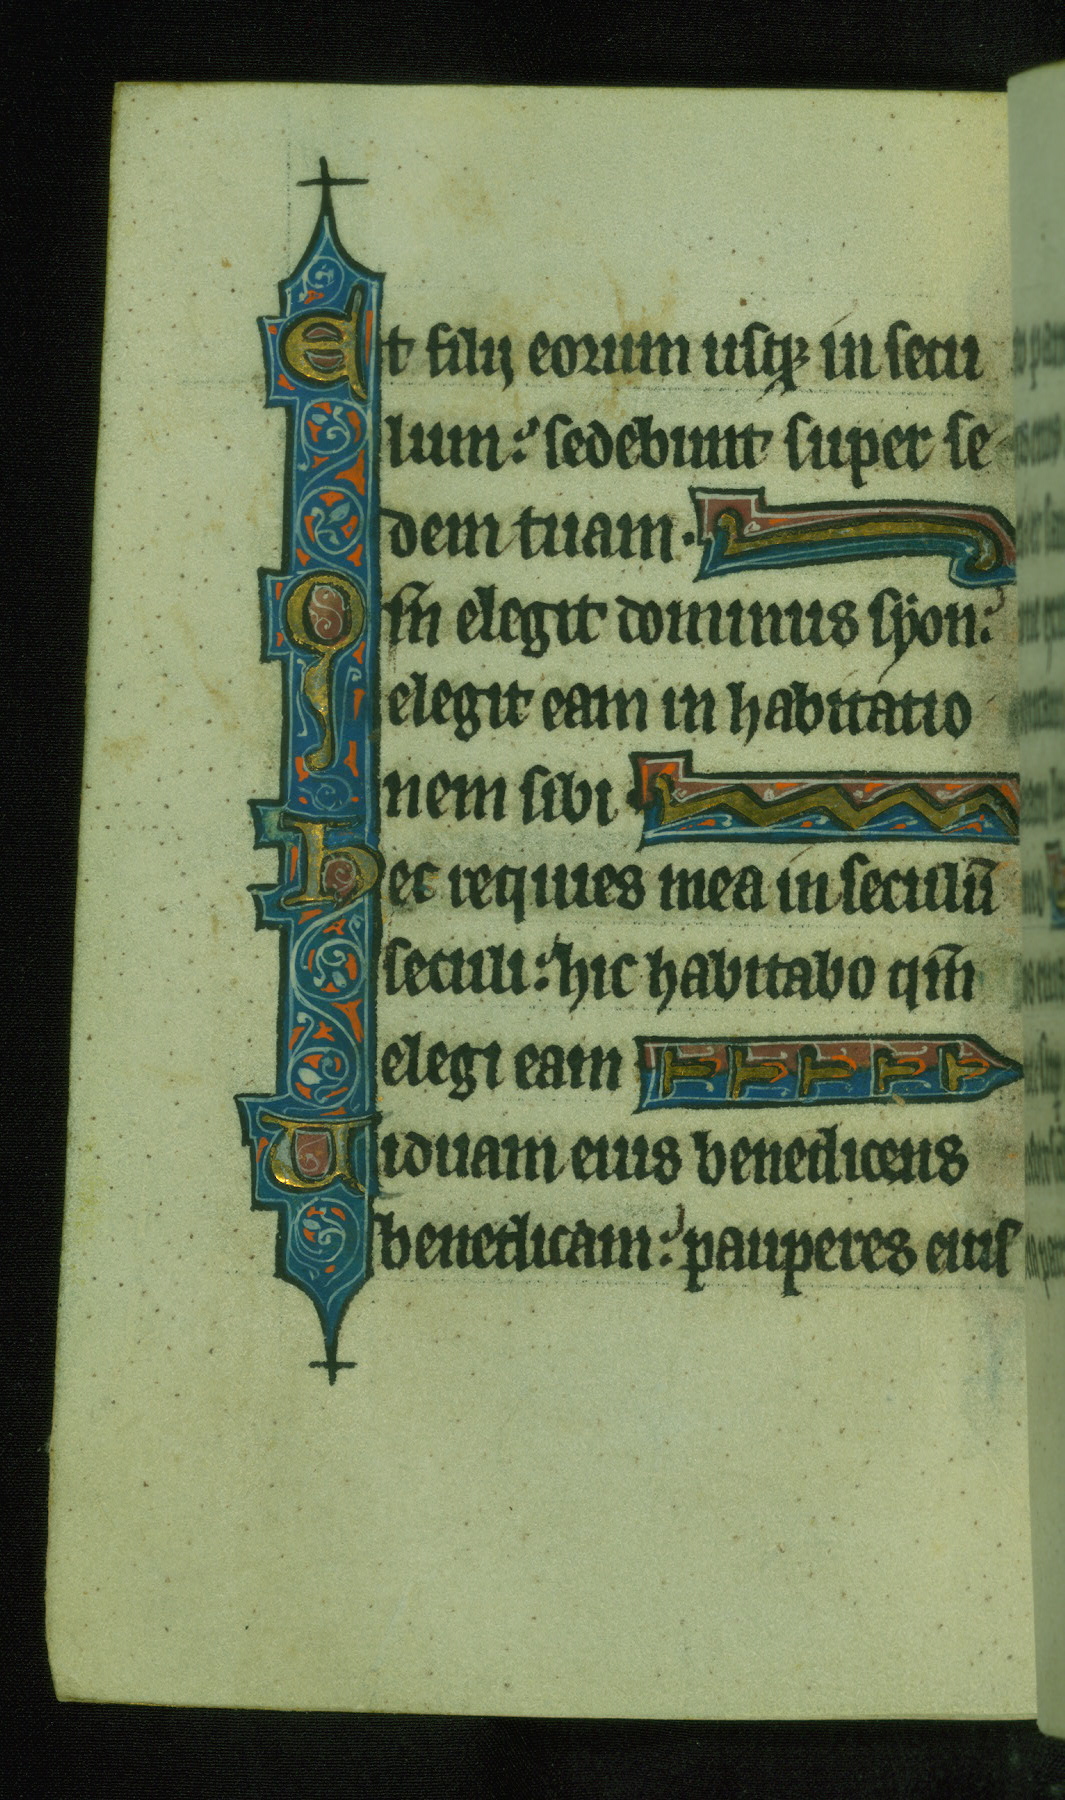 Et filij eorum usqꝫ in secu
lum: sedebunt super se
dem tuam.
Qm̄ elegit dominus syon:
elegit eam in habitatio
nem sibi
Hec requies mea in seculū
seculi: hic habitabo qm̄
elegi eam
Uiduam eius benedicens
benedicam: pauperes eius